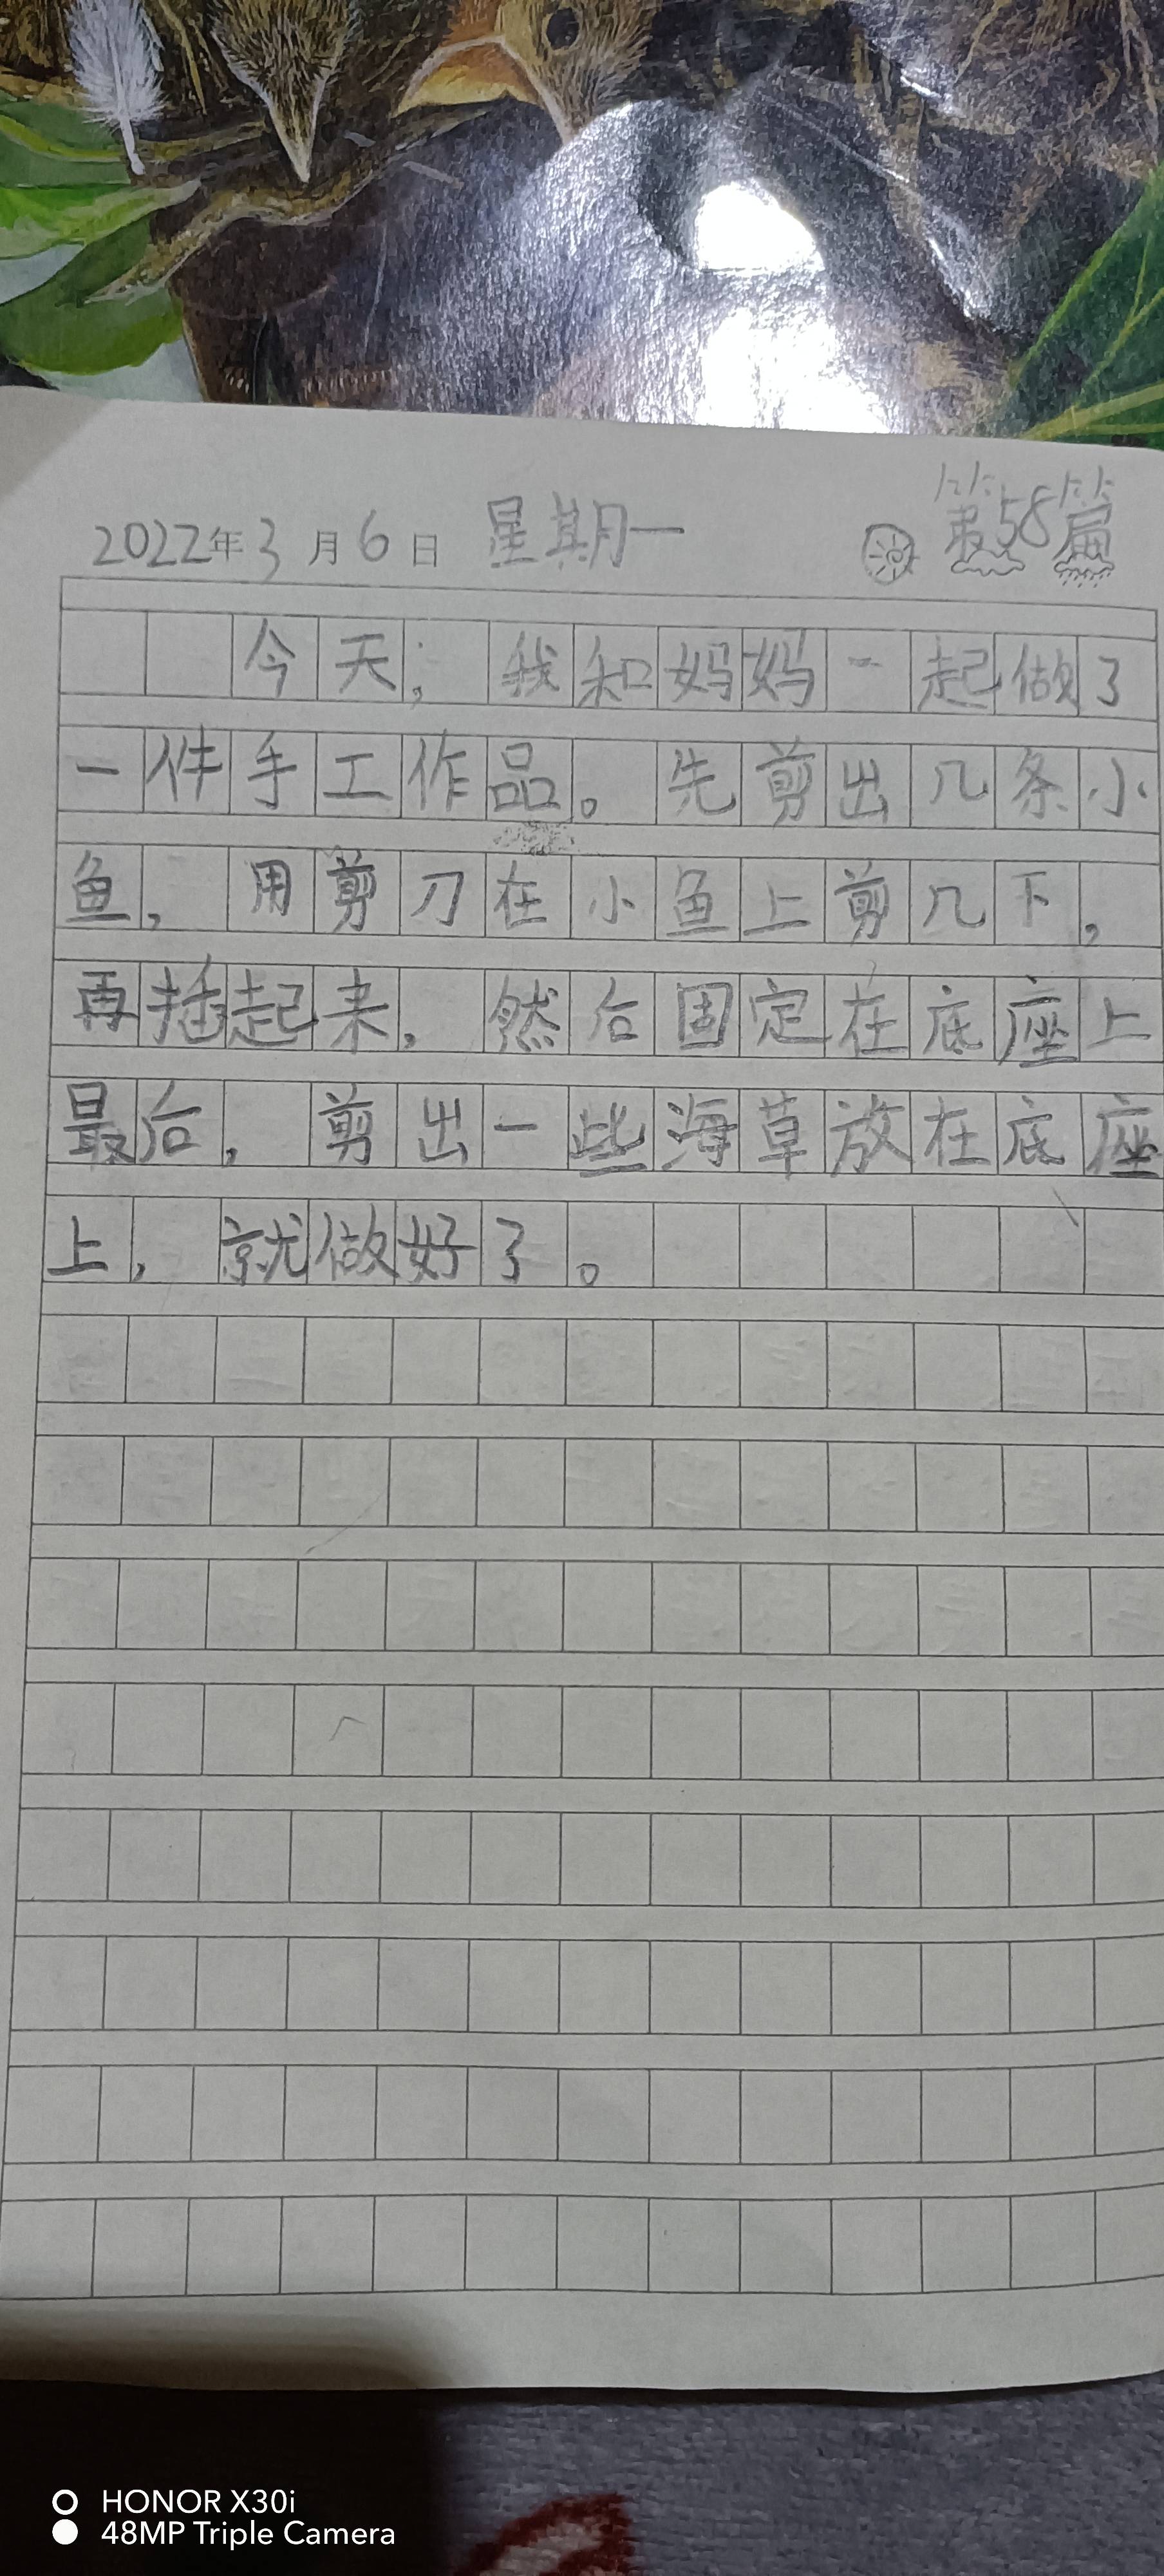 2022年3月6日 星期一 第58篇
今天，我和妈妈一起做了
一件手工作品。先剪出几条小
鱼，用剪刀在小鱼上剪几下，
再插起来，然后固定在底座上
最后，剪出一些海草放在底座
上，就做好了。
HONOR X30i
48MP Triple Camera